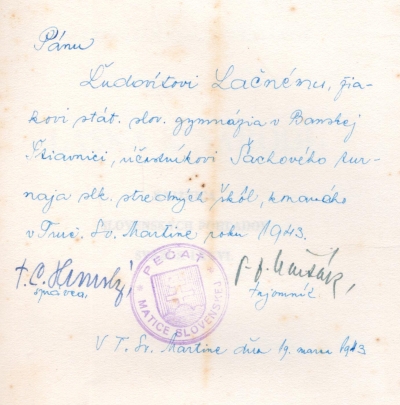 Pánu
Ľudovítovi Lačnému, žia-
kovi stát. slov. gymnázia v Banskej
Štiavnici, účastníkovi Šachového tur-
naja slk. stredných škôl, konaného
v Turč. Sv. Martine roku 1943.
PEČAŤ
MATICE SLOVENSKEJ
správca,
tajomník.
V T. Sv. Martine dňa 19. marca 1943